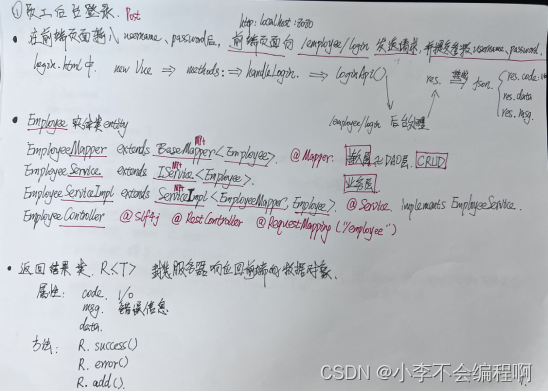 ① 员工后台登录. Post
http: localhost: 8080
• 在前端页面输入 username、password后, 前端页面向 /employee/login 发送请求, 并提交参数 username、password.
login.html中. new Vue ⇒ methods: ⇒ handleLogin. ⇒ loginApi() res. json. { res.code
res.data
res.msg.
/employee/login 后台处理
• Employee 实体类 entity
EmployeeMapper extends BaseMapper<Employee>. @Mapper. DAO层. CRUD
EmployeeService extends IService<Employee>. 业务层
EmployeeServiceImpl extends ServiceImpl<EmployeeMapper, Employee> @Service. implements EmployeeService.
EmployeeController @Slf4j @RestController @RequestMapping ("/employee")
• 返回结果类. R<T> 封装服务器响应回前端的数据对象.
属性: code. 1/0
msg. 错误信息
data.
方法: R. success()
R. error()
R. add().
CSDN @小李不会编程啊